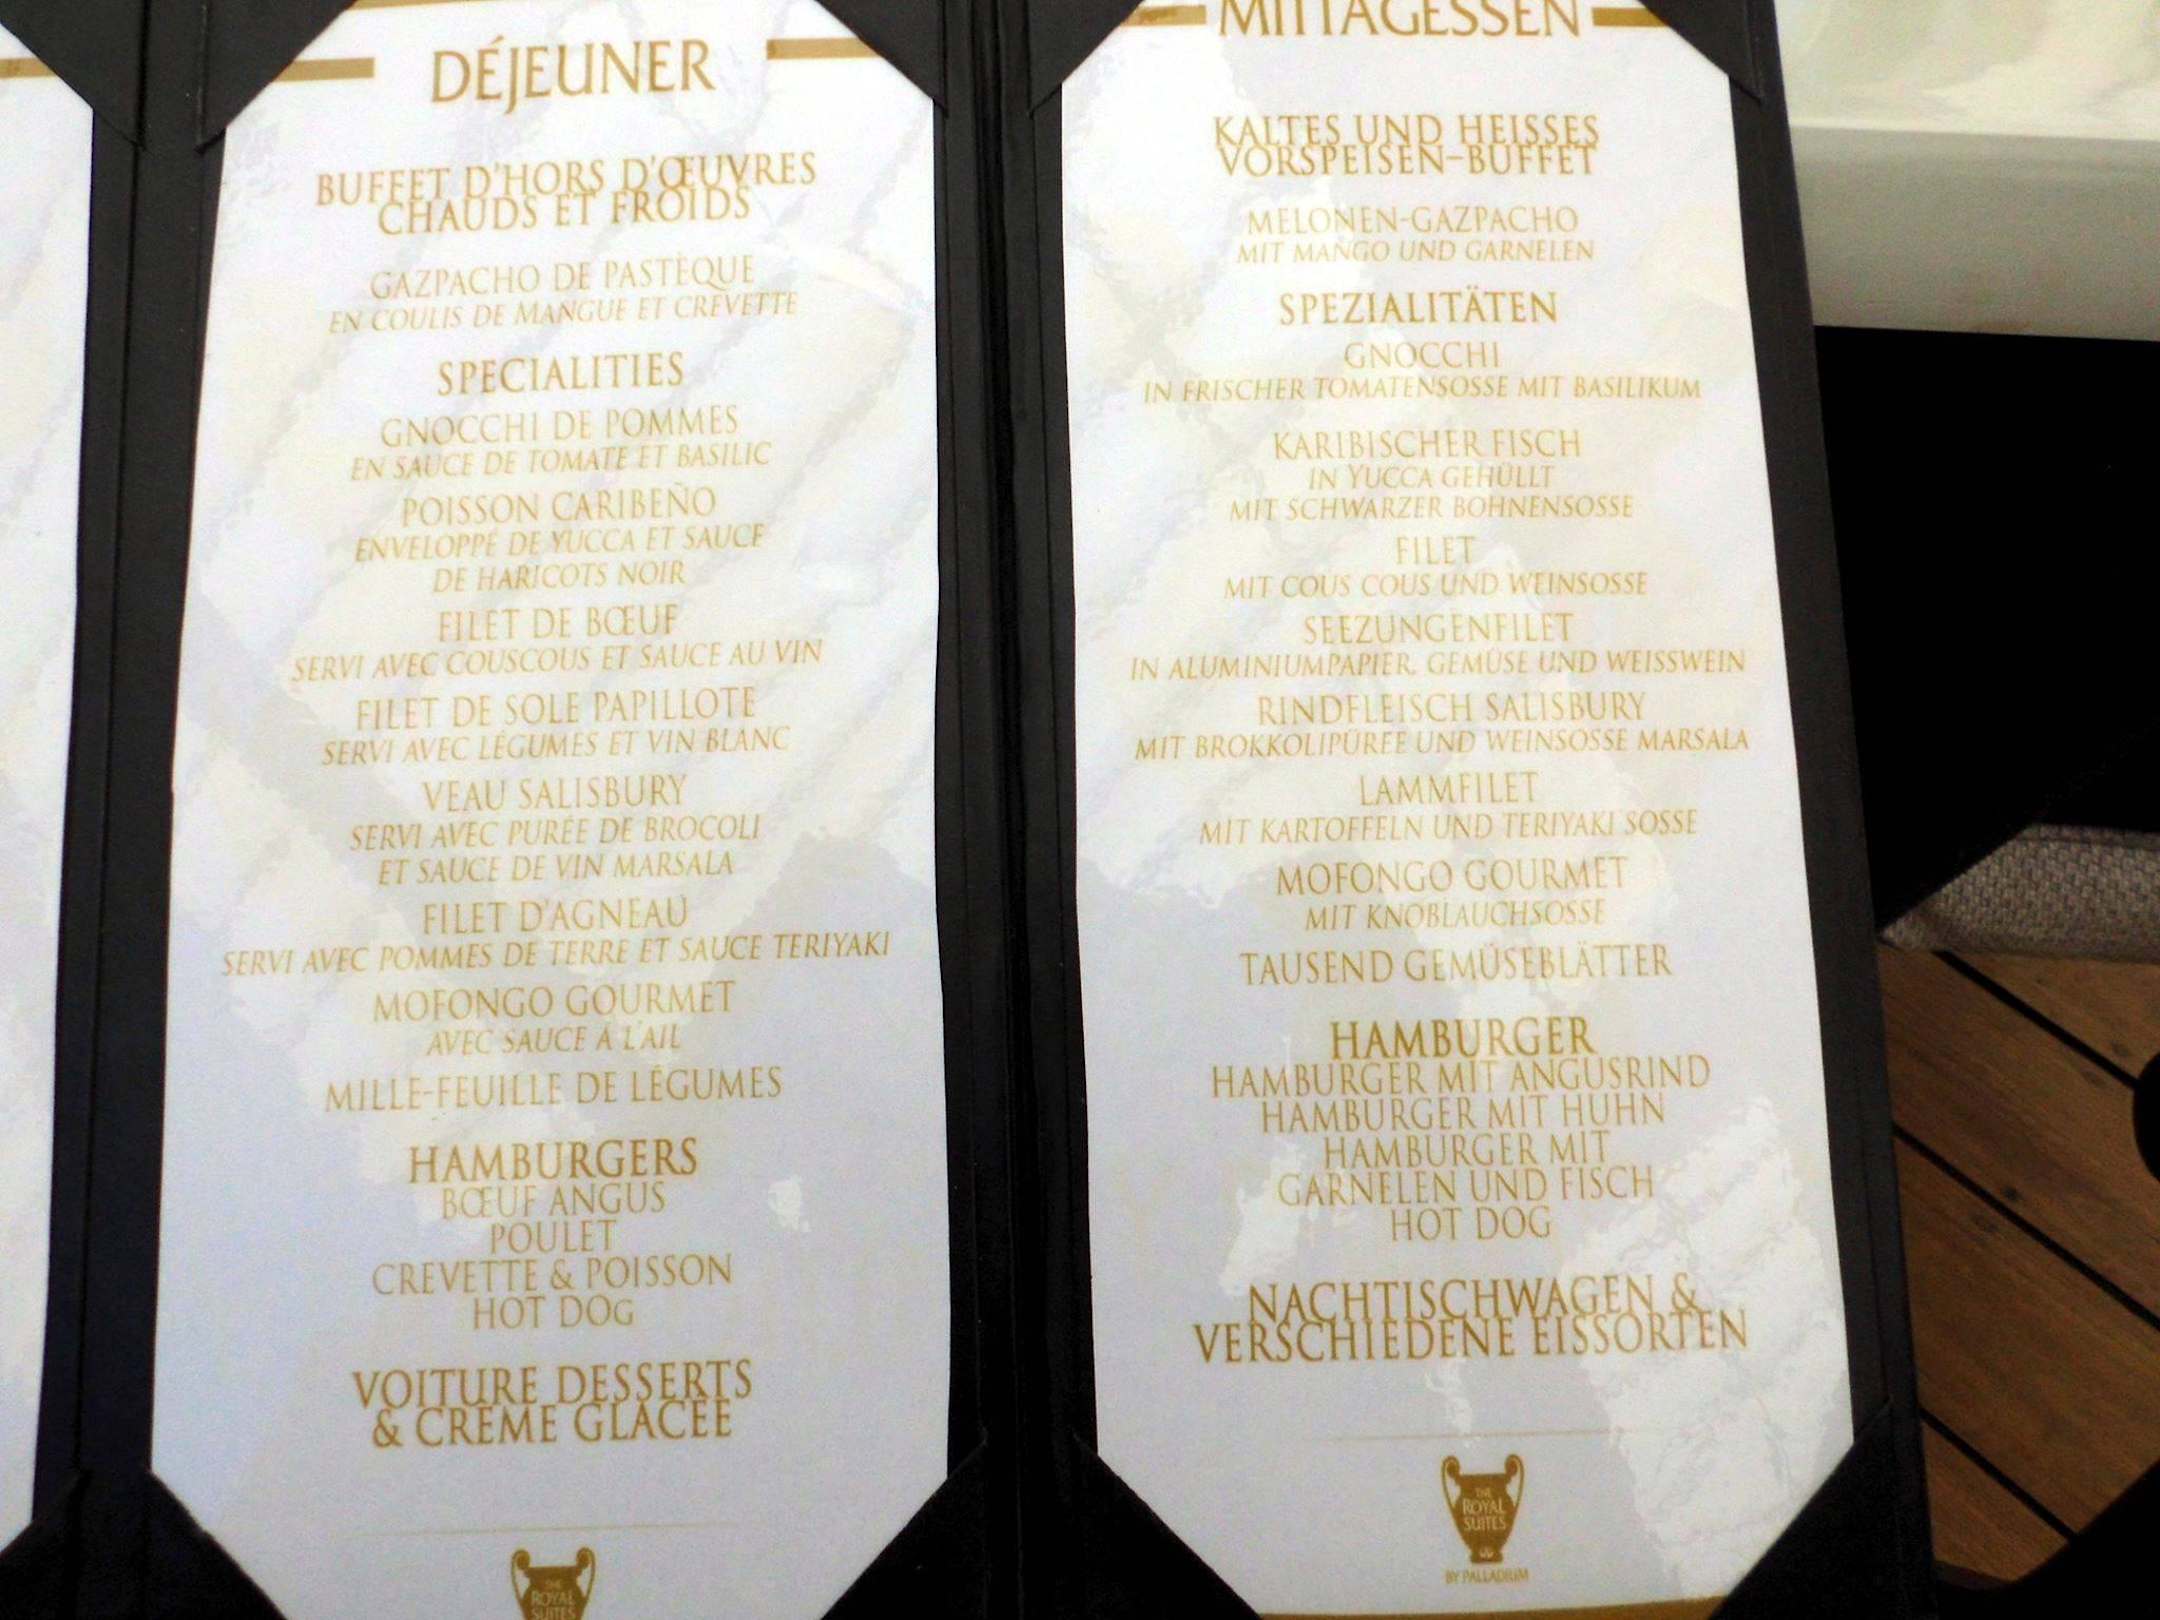 DÉJEUNER
BUFFET D'HORS D'ŒUVRES
CHAUDS ET FROIDS
GAZPACHO DE PASTÈQUE
EN COULIS DE MANGUE ET CREVETTE
SPECIALITIES
GNOCCHI DE POMMES
EN SAUCE DE TOMATE ET BASILIC
POISSON CARIBEÑO
ENVELOPPÉ DE YUCCA ET SAUCE
DE HARICOTS NOIR
FILET DE BŒUF
SERVI AVEC COUSCOUS ET SAUCE AU VIN
FILET DE SOLE PAPILLOTE
SERVI AVEC LÉGUMES ET VIN BLANC
VEAU SALISBURY
SERVI AVEC PURÉE DE BROCOLI
ET SAUCE DE VIN MARSALA
FILET D'AGNEAU
SERVI AVEC POMMES DE TERRE ET SAUCE TERIYAKI
MOFONGO GOURMET
AVEC SAUCE À L'AIL
MILLE-FEUILLE DE LÉGUMES
HAMBURGERS
BŒUF ANGUS
POULET
CREVETTE & POISSON
HOT DOG
VOITURE DESSERTS
& CRÈME GLACÉE
THE
ROYAL
SUITES
MITTAGESSEN
KALTES UND HEISSES
VORSPEISEN-BUFFET
MELONEN-GAZPACHO
MIT MANGO UND GARNELEN
SPEZIALITÄTEN
GNOCCHI
IN FRISCHER TOMATENSOSSE MIT BASILIKUM
KARIBISCHER FISCH
IN YUCCA GEHÜLLT
MIT SCHWARZER BOHNENSOSSE
FILET
MIT COUS COUS UND WEINSOSSE
SEEZUNGENFILET
IN ALUMINIUMPAPIER, GEMÜSE UND WEISSWEIN
RINDFLEISCH SALISBURY
MIT BROKKOLIPÜREE UND WEINSOSSE MARSALA
LAMMFILET
MIT KARTOFFELN UND TERIYAKI SOSSE
MOFONGO GOURMET
MIT KNOBLAUCHSOSSE
TAUSEND GEMÜSEBLÄTTER
HAMBURGER
HAMBURGER MIT ANGUSRIND
HAMBURGER MIT HUHN
HAMBURGER MIT
GARNELEN UND FISCH
HOT DOG
NACHTISCHWAGEN &
VERSCHIEDENE EISSORTEN
THE
ROYAL
SUITES
BY PALLADIUM